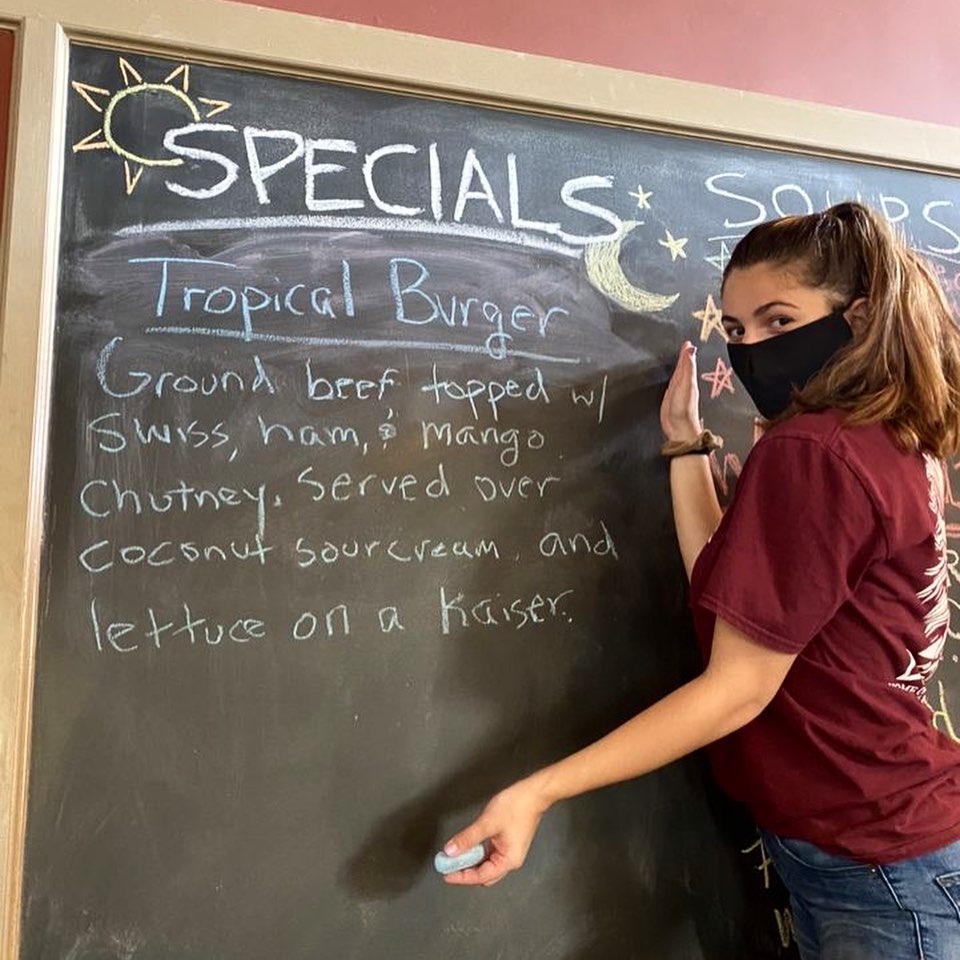 SPECIALS
Tropical Burger
Ground beef topped w/
Swiss, ham, & mango
Chutney. Served over
coconut sourcream, and
lettuce on a Kaiser.
SOUPS